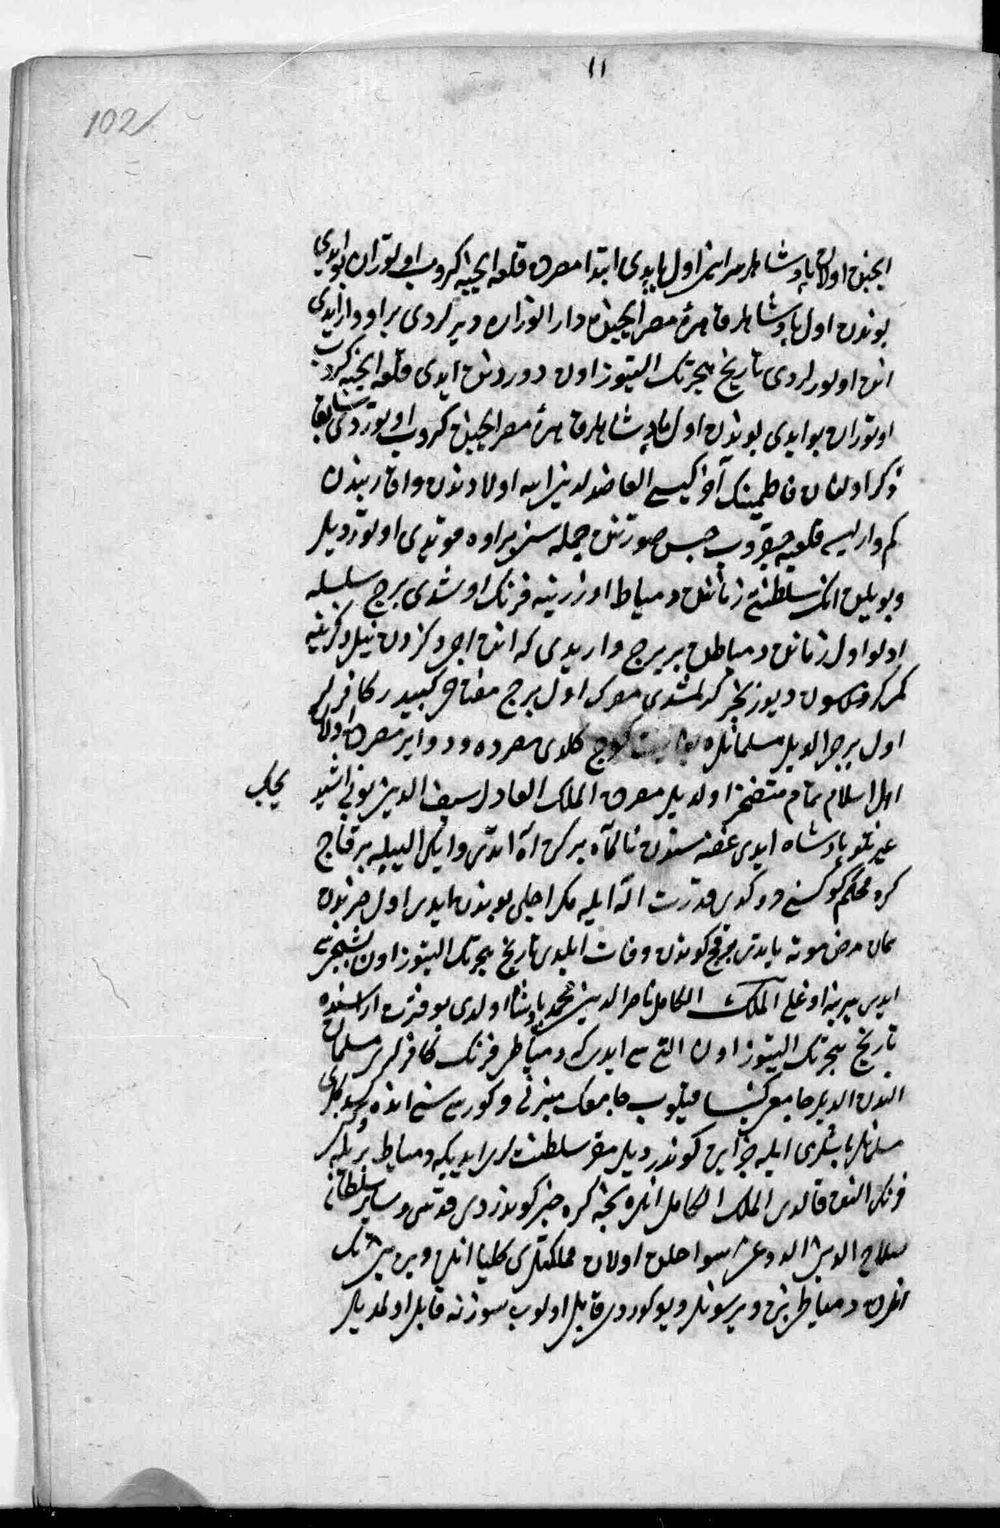 ١١
102
ایچنده اولان پادشاهلر سراین اول یاپدی ابتدا مصرده قلعه ایچینه کروب اوتوران بو ایدی
بوندن اول پادشاهلر قاهرهٔ مصر ایچینده دار الوزاره دیرلردی بر او وار ایدی
انده اولورلردی تاریخ هجرتک التیوز اون دوردنده ایدی قلعه ایچنه کروب
اوتوران بو ایدی بوندن اول پادشاهلر قاهرهٔ مصر ایچنده کروب اوتوردی سابقا
ذکر اولنان فاطمینک آخر کیسی العاضد لدین الله اولادندن واقاربندن
کم وار ایسه قلعیه چیقروب حبس صورتنده جمله سن بر اوه قویدی اوتوردیلر
وبویله انک سلطنتی زماننده دمیاط اوزرینه فرنک اوشدی برج سلسله
ادلو اول زمانده دمیاطده بر برج واریدی که انده اجی دکزدن نیل دکزینه
کمی کرمسون دیو زنجیر کرلمشدی مصرک اول برج مفتاحی کبیدر کافرلر
اول برجی الدیلر مسلمانلره بغایت کوج کلدی مصرده ودوایر مصرده اولان
اهل اسلام تمام متضجر اولدیلر مصرده الملک العادل سیف الدین بونی اشیدیجک
غیرتلو پادشاه ایدی غصه سندن ناکاه بر کز آه ایتدی وایکی الییله بر قاج
کره محکم کوکسنه دوکدی قدرت اله ایله مکر اجلی بوندن ایدی اول ضربدن
همان مرض موته یاتدی بر قاچ کوندن وفات ایلدی تاریخ هجرتک التیوز اون بشنجی سی
ایدی یرینه اوغلی الملک الکامل ناصر الدین محمد پادشاه اولدی بو فترت اراسنده
تاریخ هجرتک التیوز اون التی سی ایدی که دمیاطی فرنک کافرلری مسلمان
الندن الدیلر جامعی کنیسا قیلوب جامعک منبرنی وکورسی سنی انده
مسلمانلر باشلری ایله جزایره کوندردیلر مقر سلطنتلری ایدیکه دمیاط
فرنک النده قالدی الملک الکامل انلره نیجه کره خبر کوندردی قدسی وسایر سلطان
صلاح الدین الدوغی سواحلده اولان مملکتلری کلیا انلره ویره یین تک
انلرده دمیاطی بزه ویرسونلر دیو کوردی قابل اولوب سوزنه قابل اولمدیلر